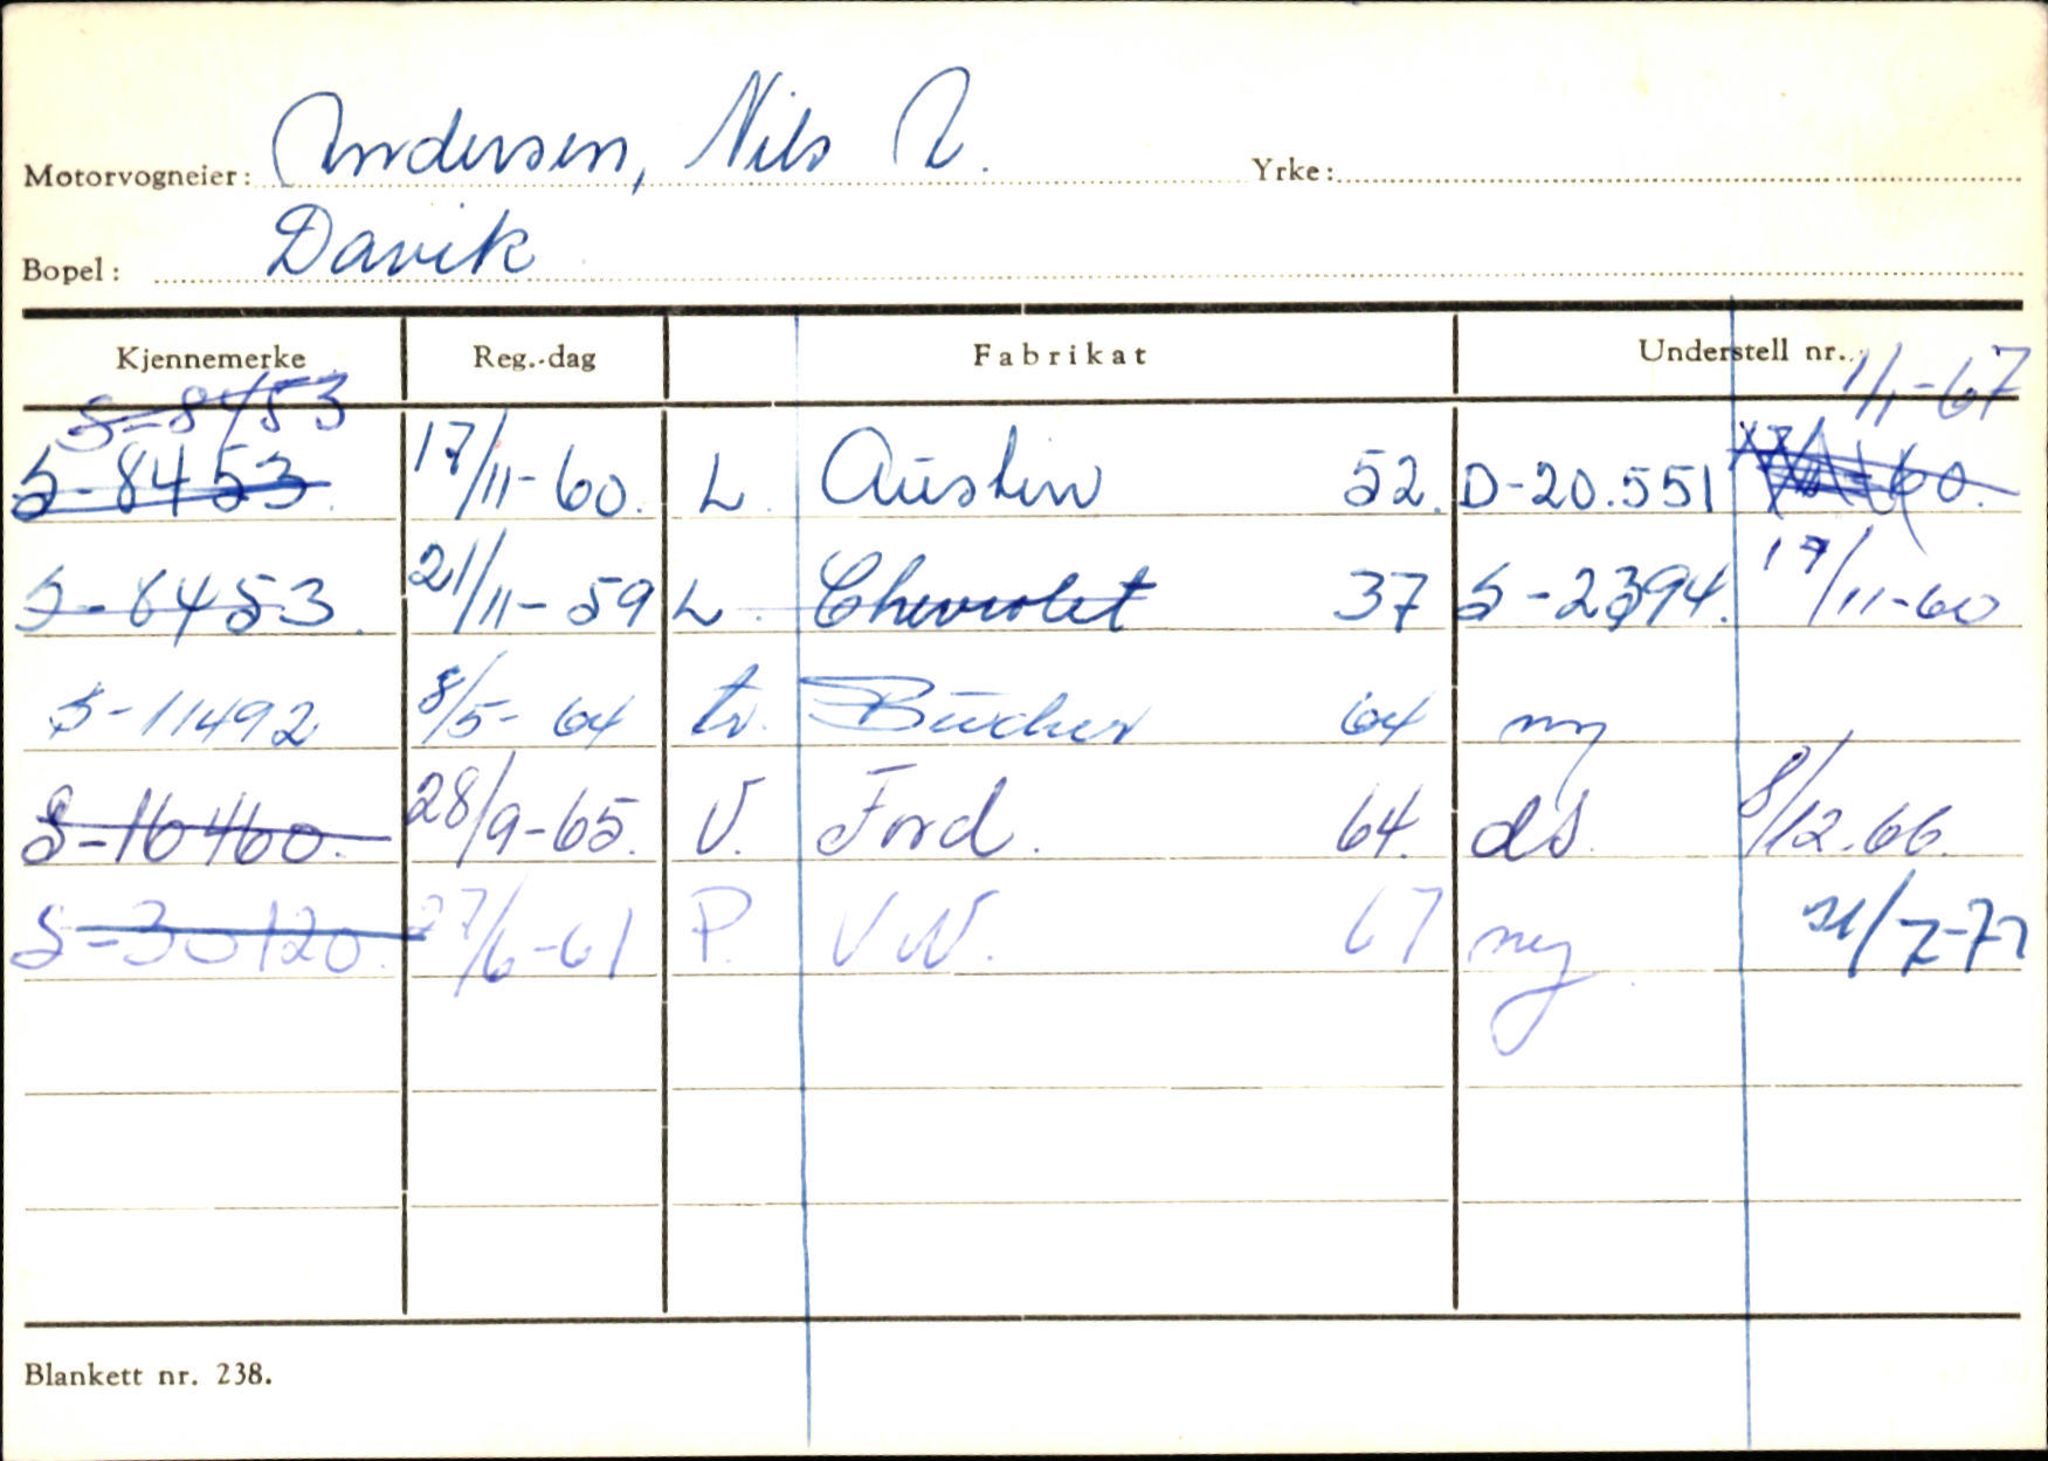 Motorvogneier: Andersen, Nils A. Yrke:
Bopel: Davik
Kjennemerke Reg.-dag Fabrikat Understell nr.
S-8453 1/1-67
S-8453 17/11-60. L. Austin 52. D-20.551
S-8453. 21/11-59 L. Chevrolet 37 S-2394. 17/11-60
S-11492 8/5-64 tr. Bücher 64 ny
S-16460. 28/9-65. V. Ford. 64. ds. 8/12.66.
S-30120. 27/6-61 P. V W. 67 ny
Blankett nr. 238.